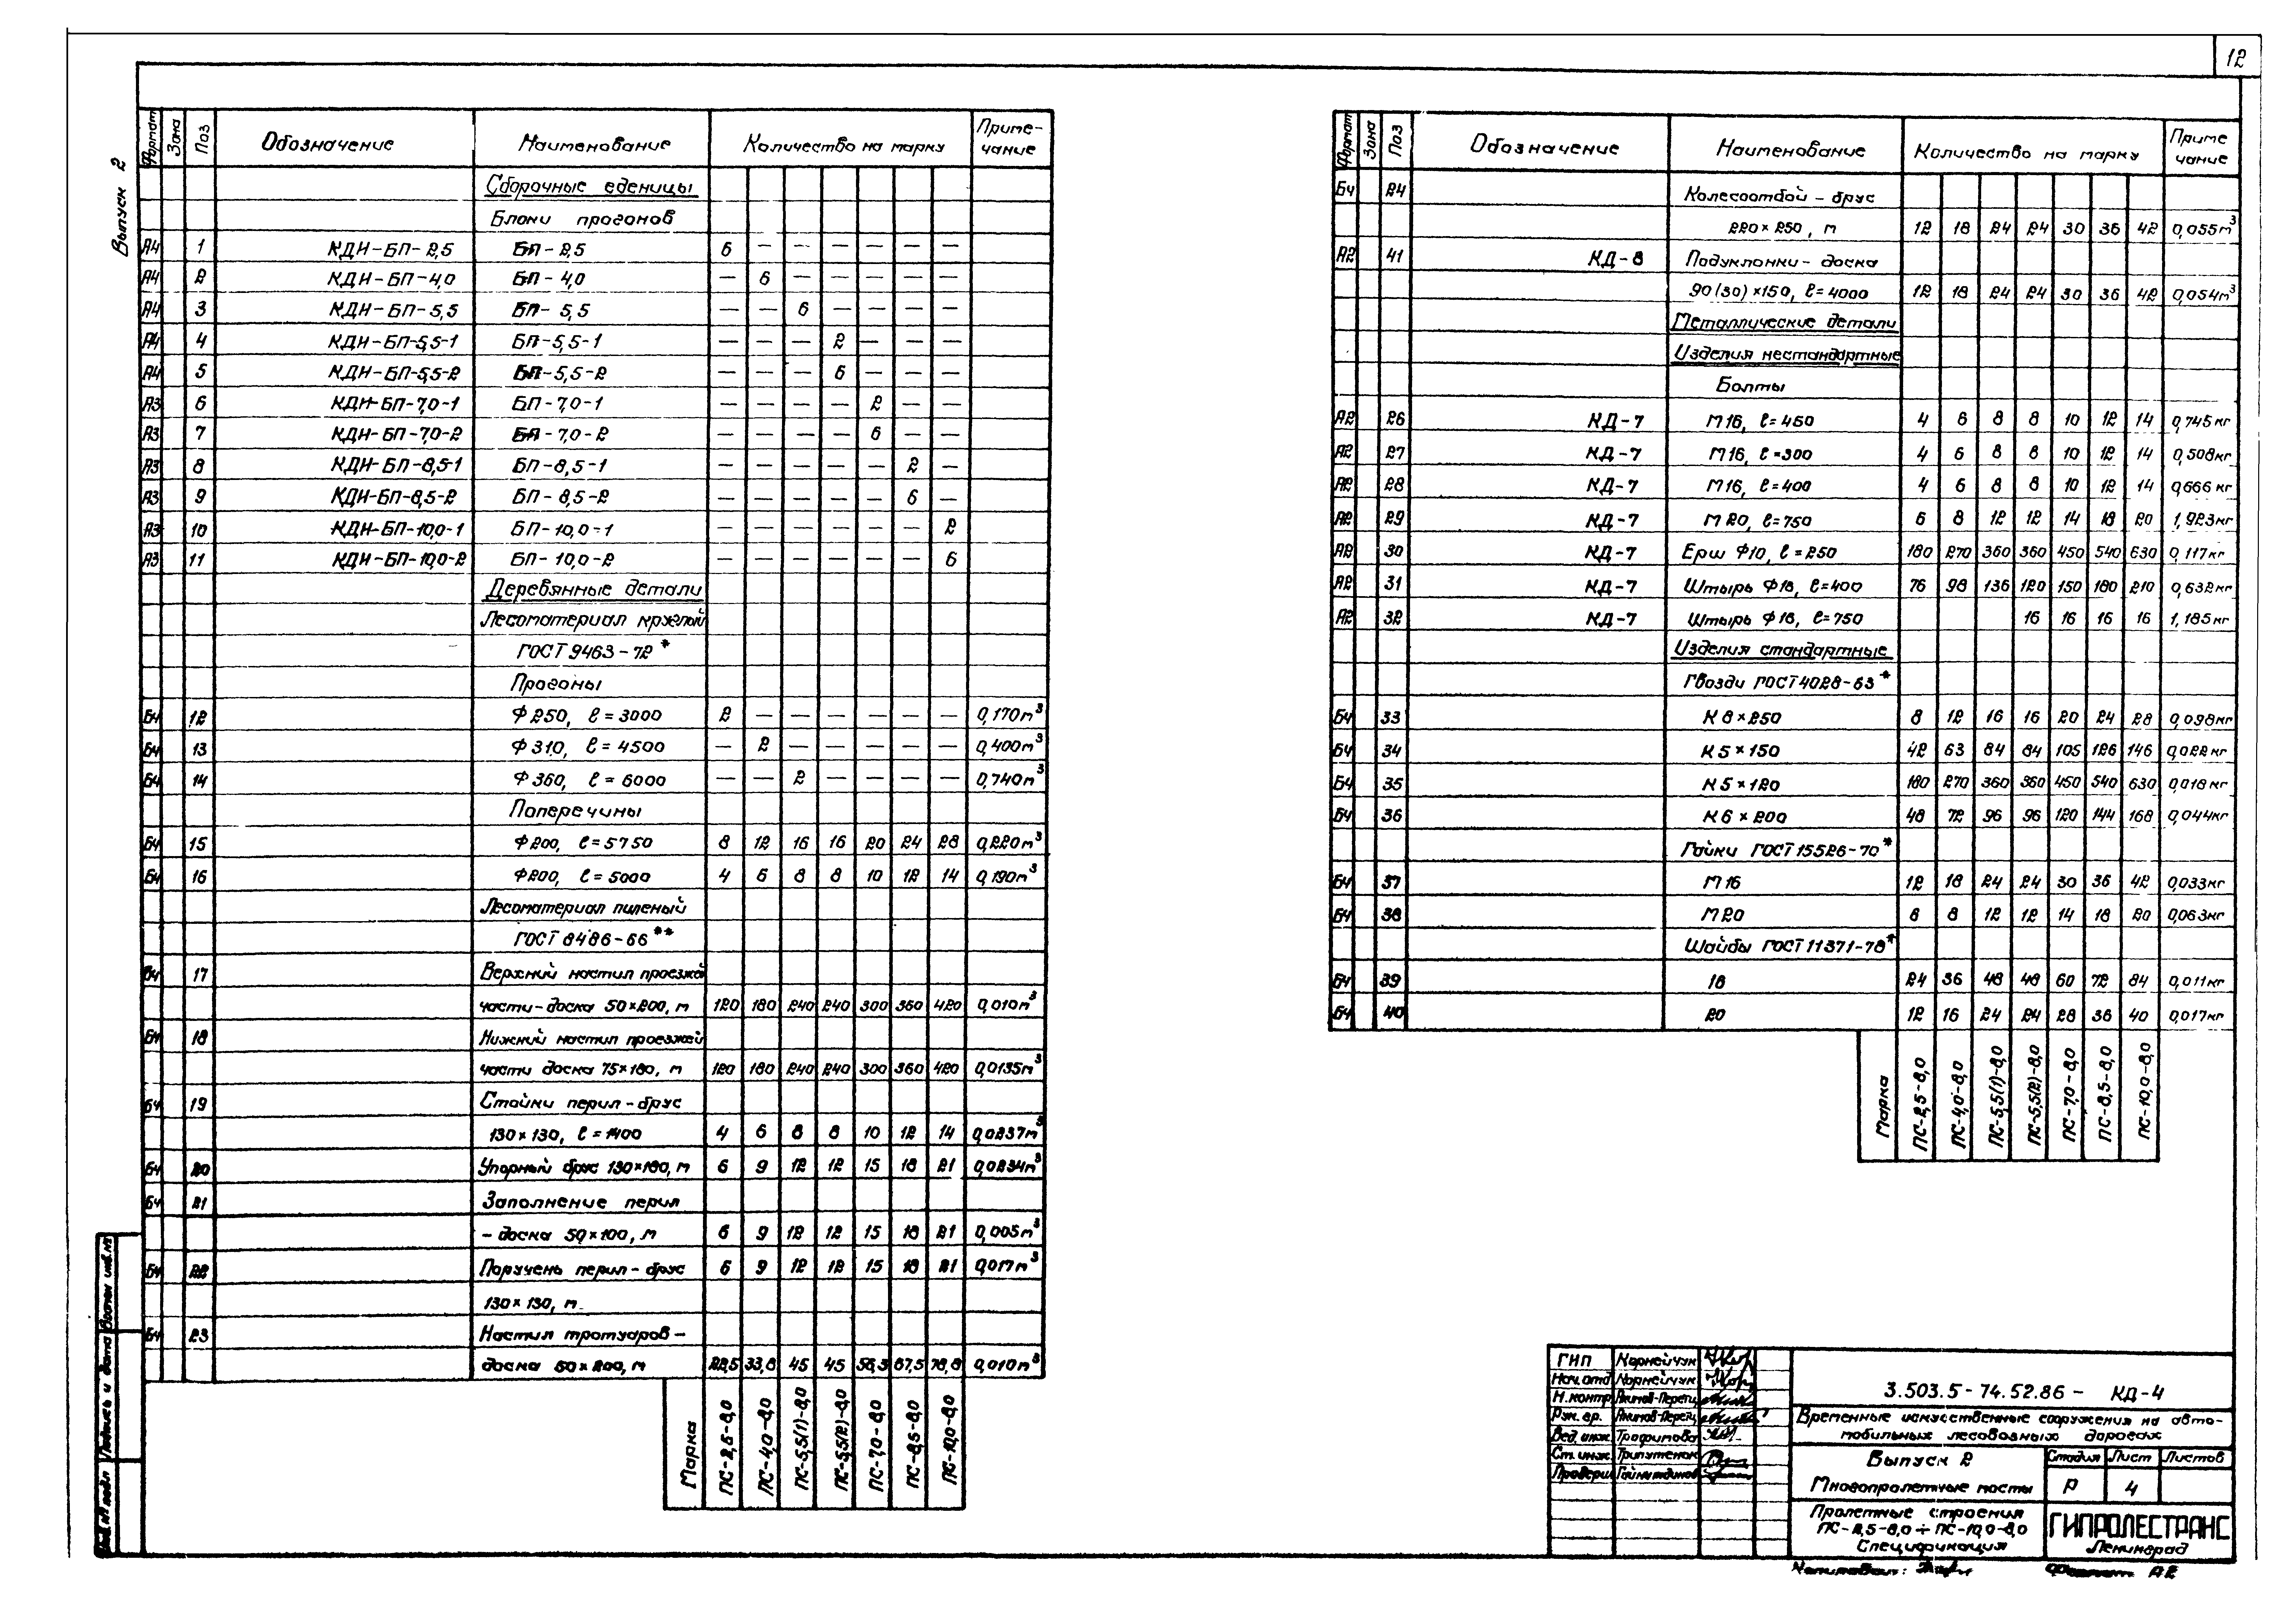 12
Выпуск 2
Формат Зона Поз Обозначение Наименование Количество на марку Приме-чание
Сборочные еденицы
Блоки прогонов
А4 1 КДИ-БП-2,5 БП-2,5 6 — — — — — —
А4 2 КДИ-БП-4,0 БП-4,0 — 6 — — — — —
А4 3 КДИ-БП-5,5 БП-5,5 — — 6 — — — —
А4 4 КДИ-БП-5,5-1 БП-5,5-1 — — — 2 — — —
А4 5 КДИ-БП-5,5-2 БП-5,5-2 — — — 6 — — —
А3 6 КДИ-БП-7,0-1 БП-7,0-1 — — — — 2 — —
А3 7 КДИ-БП-7,0-2 БП-7,0-2 — — — — 6 — —
А3 8 КДИ-БП-8,5-1 БП-8,5-1 — — — — — 2 —
А3 9 КДИ-БП-8,5-2 БП-8,5-2 — — — — — 6 —
А3 10 КДИ-БП-10,0-1 БП-10,0-1 — — — — — — 2
А3 11 КДИ-БП-10,0-2 БП-10,0-2 — — — — — — 6
Деревянные детали
Лесоматериал круглый
ГОСТ 9463-72*
Прогоны
БЧ 12 Ф250, ℓ=3000 2 — — — — — — 0,170м³
БЧ 13 Ф310, ℓ=4500 — 2 — — — — — 0,400м³
БЧ 14 Ф360, ℓ=6000 — — 2 — — — — 0,740м³
Поперечины
БЧ 15 Ф200, ℓ=5750 8 12 16 16 20 24 28 0,220м³
БЧ 16 Ф200, ℓ=5000 4 6 8 8 10 12 14 0,190м³
Лесоматериал пиленый
ГОСТ 8486-66**
БЧ 17 Верхний настил проезжей
части-доска 50×200, м 120 180 240 240 300 360 420 0,010м³
БЧ 18 Нижний настил проезжей
части доска 75×180, м 120 180 240 240 300 360 420 0,0135м³
БЧ 19 Стойки перил-брус
130×130, ℓ=1400 4 6 8 8 10 12 14 0,0237м³
БЧ 20 Упорный брус 130×180, м 6 9 12 12 15 18 21 0,0234м³
БЧ 21 Заполнение перил
- доска 50×100, м 6 9 12 12 15 18 21 0,005м³
БЧ 22 Поручень перил-брус 6 9 12 12 15 18 21 0,017м³
130×130, м
БЧ 23 Настил тротуаров-
доска 50×200, м 22,5 33,8 45 45 56,3 67,5 78,8 0,010м³
Марка ПС-2,5-8,0 ПС-4,0-8,0 ПС-5,5(1)-8,0 ПС-5,5(2)-8,0 ПС-7,0-8,0 ПС-8,5-8,0 ПС-10,0-8,0
Формат Зона Поз Обозначение Наименование Количество на марку Приме чание
БЧ 24 Колесоотбой-брус
220×250, м 12 18 24 24 30 36 42 0,055м³
А2 41 КД-8 Подуклонки-доска
90(30)×150, ℓ=4000 12 18 24 24 30 36 42 0,054м³
Металлические детали
Изделия нестандартные
Болты
А2 26 КД-7 М16, ℓ=450 4 6 8 8 10 12 14 0,745кг
А2 27 КД-7 М16, ℓ=300 4 6 8 8 10 12 14 0,508кг
А2 28 КД-7 М16, ℓ=400 4 6 8 8 10 12 14 0,666кг
А2 29 КД-7 М20, ℓ=750 6 8 12 12 14 18 20 1,923кг
А2 30 КД-7 Ерш Ф10, ℓ=250 180 270 360 360 450 540 630 0,117кг
А2 31 КД-7 Штырь Ф16, ℓ=400 76 98 136 120 150 180 210 0,632кг
А2 32 КД-7 Штырь Ф16, ℓ=750 16 16 16 16 1,185кг
Изделия стандартные
Гвозди ГОСТ 4028-63*
БЧ 33 К8×250 8 12 16 16 20 24 28 0,098кг
БЧ 34 К5×150 42 63 84 84 105 126 146 0,022кг
БЧ 35 К5×120 180 270 360 360 450 540 630 0,018кг
БЧ 36 К6×200 48 72 96 96 120 144 168 0,044кг
Гайки ГОСТ 15526-70*
БЧ 37 М16 12 18 24 24 30 36 42 0,033кг
БЧ 38 М20 6 8 12 12 14 18 20 0,063кг
Шайбы ГОСТ 11371-78*
БЧ 39 16 24 36 48 48 60 72 84 0,011кг
БЧ 40 20 12 16 24 24 28 36 40 0,017кг
Марка ПС-2,5-8,0 ПС-4,0-8,0 ПС-5,5(1)-8,0 ПС-5,5(2)-8,0 ПС-7,0-8,0 ПС-8,5-8,0 ПС-10,0-8,0
ГИП Корнейчук
Нач. отд Корнейчук
Н. контр
Рук. гр.
Вед. инж. Трофимова
Ст. инж.
Провери
3.503.5-74.52.86- КД-4
Временные искусственные сооружения на авто-
мобильных лесовозных дорогах
Выпуск 2
Многопролетные мосты
Стадия Лист Листов
Р 4
Пролетные строения
ПС-2,5-8,0 ÷ ПС-10,0-8,0
Спецификация
ГИПРОЛЕСТРАНС
Ленинград
Копировал:
Формат А2
Инв. № подл Подпись и дата Взамен инв. №